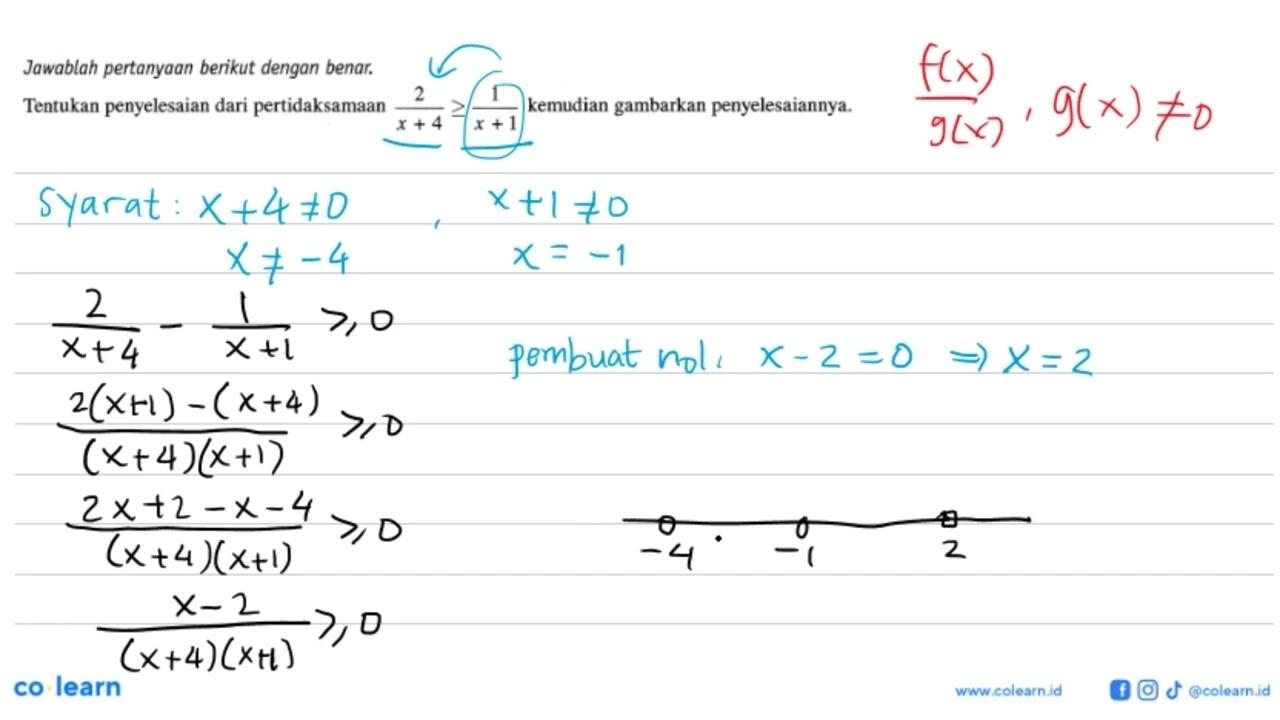 Jawablah pertanyaan berikut dengan benar.
Tentukan penyelesaian dari pertidaksamaan 2/(x + 4) ≥ 1/(x + 1) kemudian gambarkan penyelesaiannya.
f(x)/g(x) , g(x) ≠ 0
Syarat : x + 4 ≠ 0 , x + 1 ≠ 0
x ≠ -4 x = -1
2/(x+4) - 1/(x+1) ≥ 0
pembuat nol : x - 2 = 0 ⇒ x = 2
(2(x+1) - (x+4))/((x+4)(x+1)) ≥ 0
(2x+2-x-4)/((x+4)(x+1)) ≥ 0
-4 -1 2
(x-2)/((x+4)(x+1)) ≥ 0
co learn
www.colearn.id @colearn.id